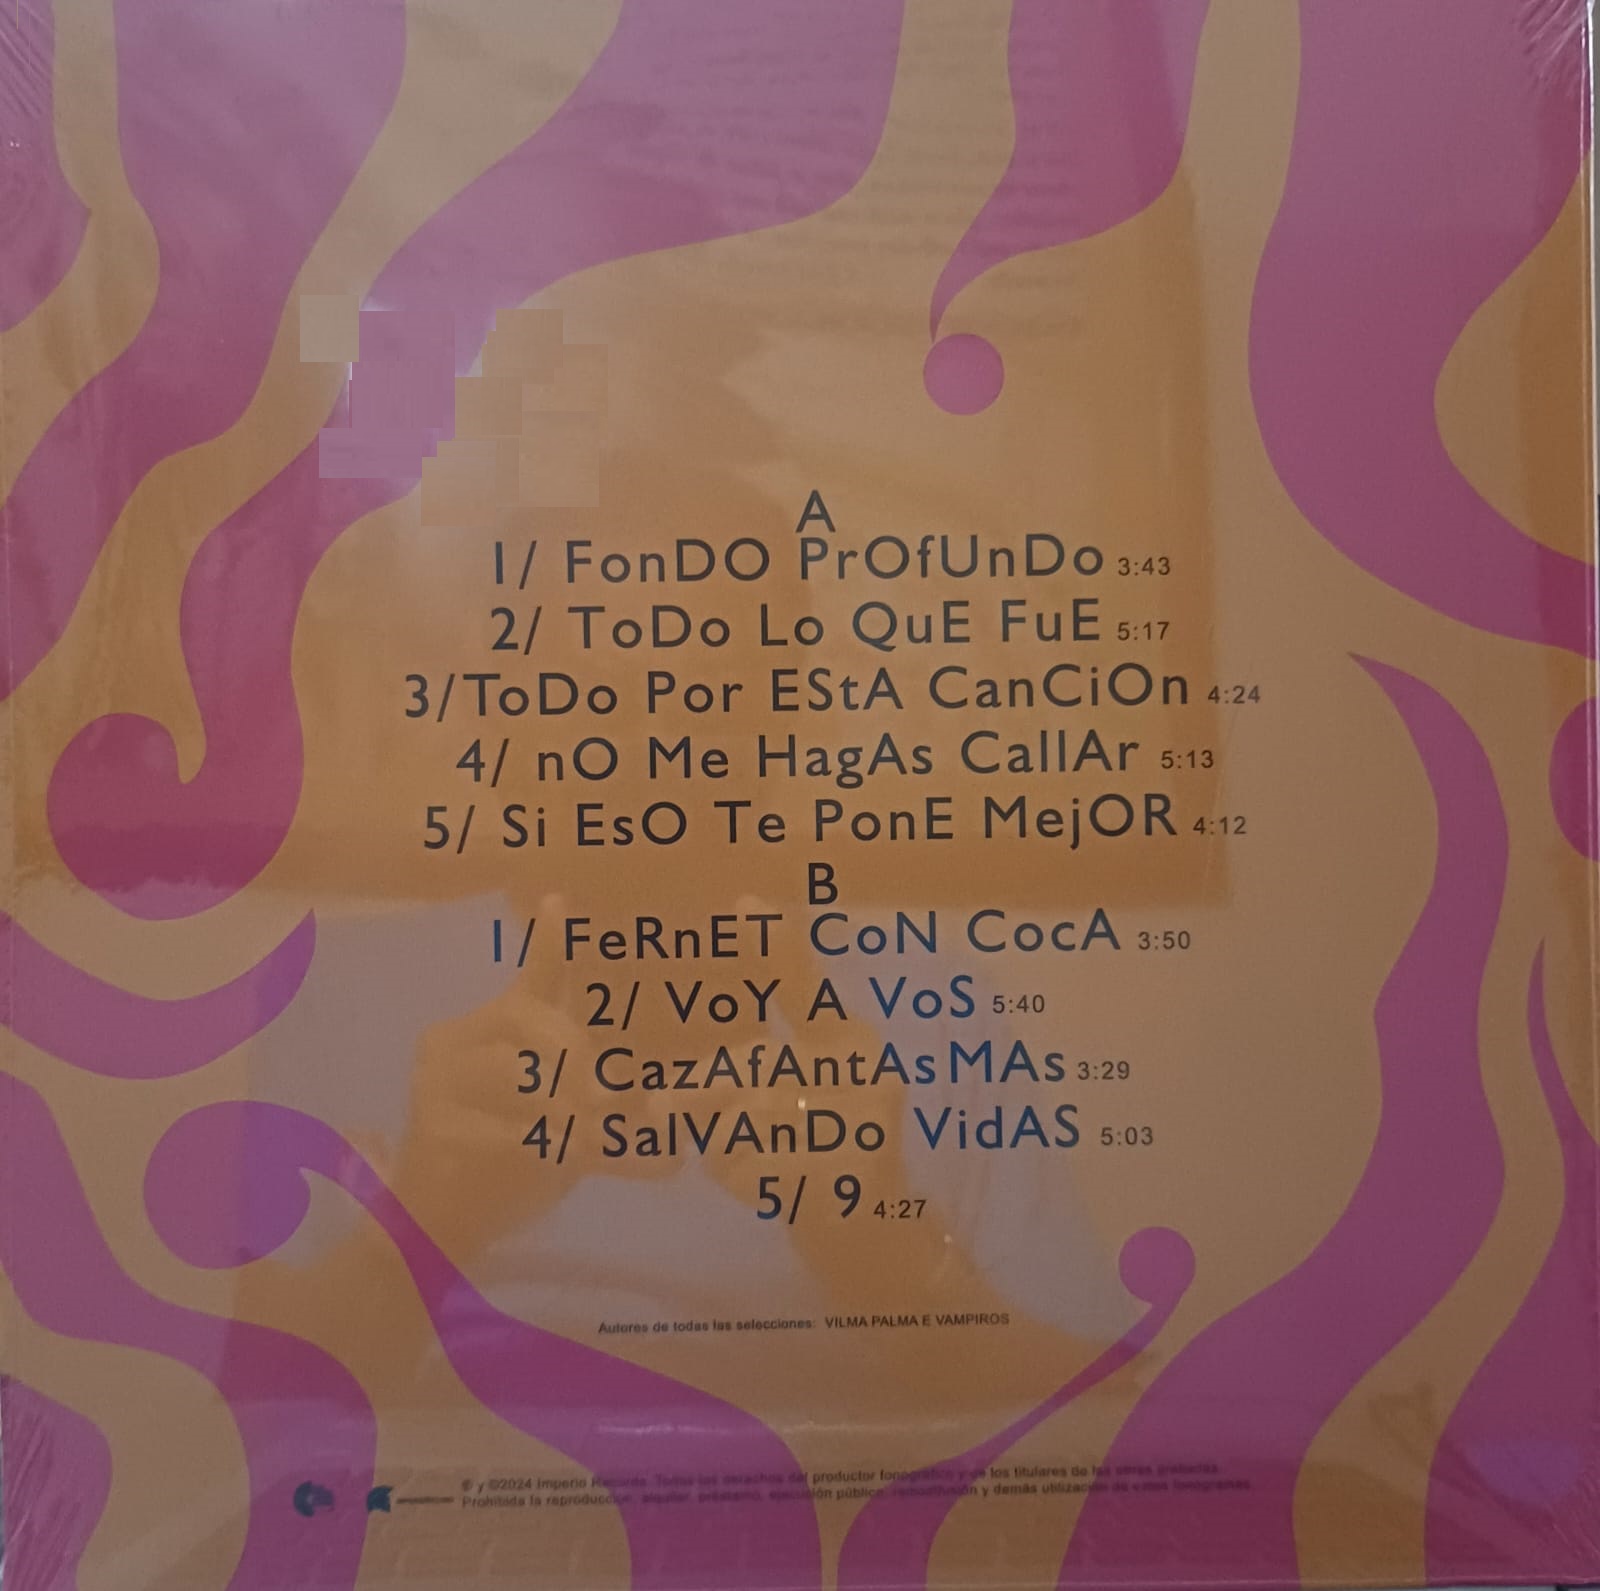 A
1/ FonDO PrOfUnDo 3:43
2/ ToDo Lo QuE FuE 5:17
3/ToDo Por EStA CanCiOn 4:24
4/ nO Me HagAs CallAr 5:13
5/ Si EsO Te PonE MejOR 4:12
B
1/ FeRnET CoN CocA 3:50
2/ VoY A VoS 5:40
3/ CazAfAntAsMAs 3:29
4/ SalVAnDo VidAS 5:03
5/ 9 4:27
Autores de todas las selecciones: VILMA PALMA E VAMPIROS
℗ y ©2024 Imperio Records. Todos los derechos del productor fonográfico y de los titulares de las obras grabadas.
Prohibida la reproducción, alquiler, préstamo, ejecución pública, y demás utilización de estos fonogramas